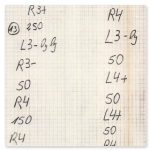 R3+
43 250
L3-
R3-
50
R4
150
R4
R4
L3-
50
L4+
50
L4+
50
R4